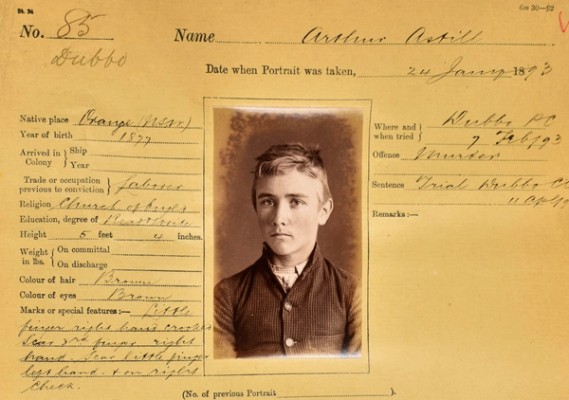 No. 85 Name Arthur Astill
Dubbo
Date when Portrait was taken, 24 Jany 1893
Native place Orange (N.S.W.)
Year of birth 1877
Arrived in Colony } Ship
Year
Trade or occupation previous to conviction } Labourer
Religion Church of Engld
Education, degree of Read & write
Height 5 feet 4 inches.
Weight in lbs. } On committal
On discharge
Colour of hair Brown
Colour of eyes Brown
Marks or special features:— Little
finger right hand crooked
Scar 3rd finger right
hand. Scar little finger
left hand. & on right
cheek.
Where and when tried } Dubbo PC
7 Feb/93
Offence Murder
Sentence Trial Dubbo
11 Apl/9
Remarks:—
(No. of previous Portrait ).